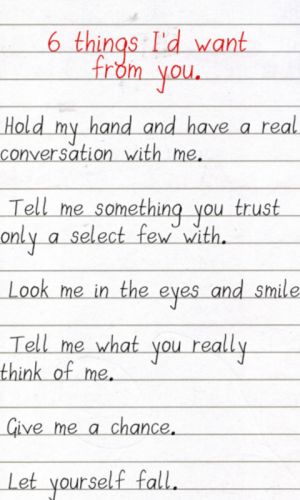 6 things I'd want
from you.
Hold my hand and have a real
conversation with me.
Tell me something you trust
only a select few with.
Look me in the eyes and smile
Tell me what you really
think of me.
Give me a chance.
Let yourself fall.